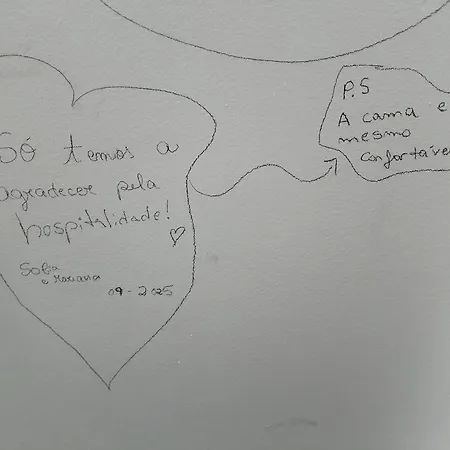 Só temos a
agradecer pela
hospitalidade!
Sofia
e Mariana
09-2025
P.S
A cama e
mesmo
confortável